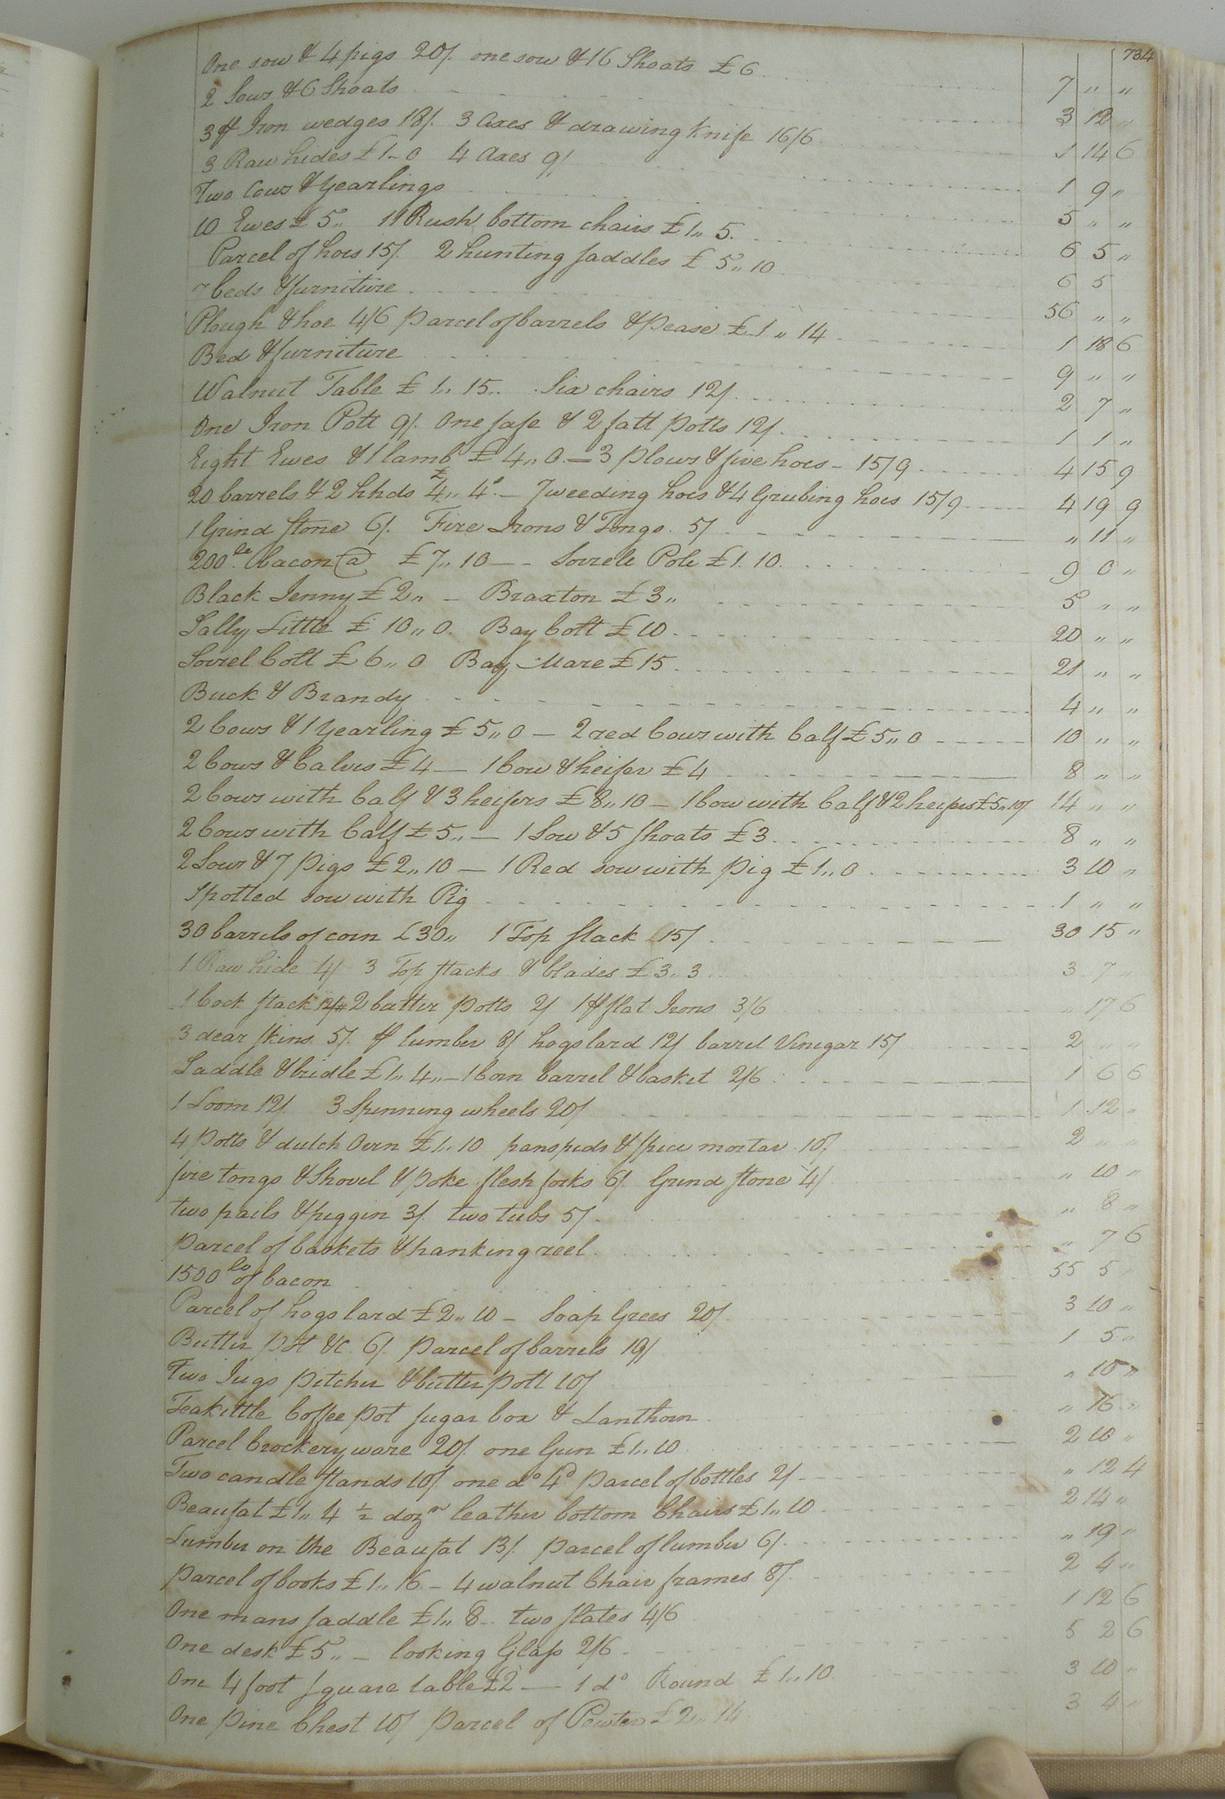 734
One sow & 4 pigs 20/. one sow & 16 Shoats £6 7 " "
2 Sows & 6 Shoats 3 12 "
3 pr Iron wedges 18/. 3 axes & drawing knife 16/6 1 14 6
3 Raw hides £1-0 4 Axes 9/ 1 9 "
Two Cows & Yearlings 5 " "
10 Ewes £5" 11 Rush bottom chairs £1" 5. 6 5 "
Parcel of hoes 15/. 2 hunting saddles £5" 10 6 5
7 beds & furniture 56 " "
Plough & hoe 4/6 Parcel of barrels & pease £1 " 14 1 18 6
Bed & furniture 9 " "
Walnut Table £1" 15" Six chairs 12/. 2 7 "
One Iron Pott 9/. One safe & 2 fatt potts 12/. 1 1 "
Eight Ewes & 1 lamb £4" 0 — 3 plows & five hoes - 15/9 4 15 9
20 barrels & 2 hhds £4" 4s. — 7 weeding hoes & 4 Grubing hoes 15/9 4 19 9
1 Grind stone 6/. Fire Irons & Tongs. 5/ " 11 "
200 lb bacon @ £7" 10 — - Sorrele Pole £1. 10 9 0 "
Black Jenny £2" - Braxton £3" 5 " "
Sally Little £10" 0. Bay Colt £10 20 " "
Sorrel Colt £6" 0 Bay Mare £15 21 " "
Buck & Brandy 4 " "
2 Cows & 1 Yearling £5" 0 — 2 red Cows with Calf £5" 0 10 " "
2 Cows & Calves £4 — 1 Cow & heifer £4 8 " "
2 Cows with Calf & 3 heifers £8" 10 — 1 Cow with Calf & 2 heifers £5" 10/ 14 " "
2 Cows with Calf £5" — 1 Sow & 5 Shoats £3 8 " "
2 Sows & 7 pigs £2" 10 — 1 Red sow with pig £1" 0 3 10 "
Spotted sow with Pig 1 " "
30 barrels of corn £30" 1 Top stack 15/ 30 15 "
1 Raw hide 4/ 3 Top stacks & blades £3. 3 3 7
1 Cock stack 12/ 2 butter potts 2/ 1 pr flat Irons 3/6 " 17 6
3 dear skins 5/. pr lumber 8/ hogs lard 12/ barrel Vinegar 15/ 2 " "
Saddle & bridle £1" 4" — 1 Corn barrel & basket 2/6 1 6 6
1 Loom 12/ 3 Spinning wheels 20/ 1 12 "
4 Potts & dutch Oven £1" 10 panspeds & spice mortar 10/ 2 " "
fire tongs & Shovel & poke flesh forks 6/ Grind stone 4/ " 10 "
two pails & piggin 3/. two tubs 5/ " 8 "
Parcel of baskets & hanking reel " 7 6
1500 lb of bacon 55 5
Parcel of hogs lard £2" 10 — Soap Grees 20/ 3 10 "
Butter pot &c 6/. Parcel of barrels 19/ 1 5 "
Two Jugs pitcher & butter pott 10/ " 10 "
Teakittle Coffee pot sugar box & Lanthorn " 16 "
Parcel Crockery ware 20/. one Gun £1" 10 2 10 "
Two candle stands 10/ one do 4d Parcel of bottles 2/ " 12 4
Beaufat £1" 4 ½ dozn leather bottom Chairs £1" 10 2 14 "
Lumber on the Beaufat 13/. Parcel of lumber 6/. " 19 "
Parcel of books £1" 16 - 4 walnut Chair frames 8/ 2 4 "
One mans saddle £1" 8 - two slates 4/6 1 12 6
One desk £5" — looking Glass 2/6 5 2 6
One 4 foot square table £2 — 1 do Round £1" 10 3 10 "
One pine Chest 10/ Parcel of Pewter £2" 14 3 4 "